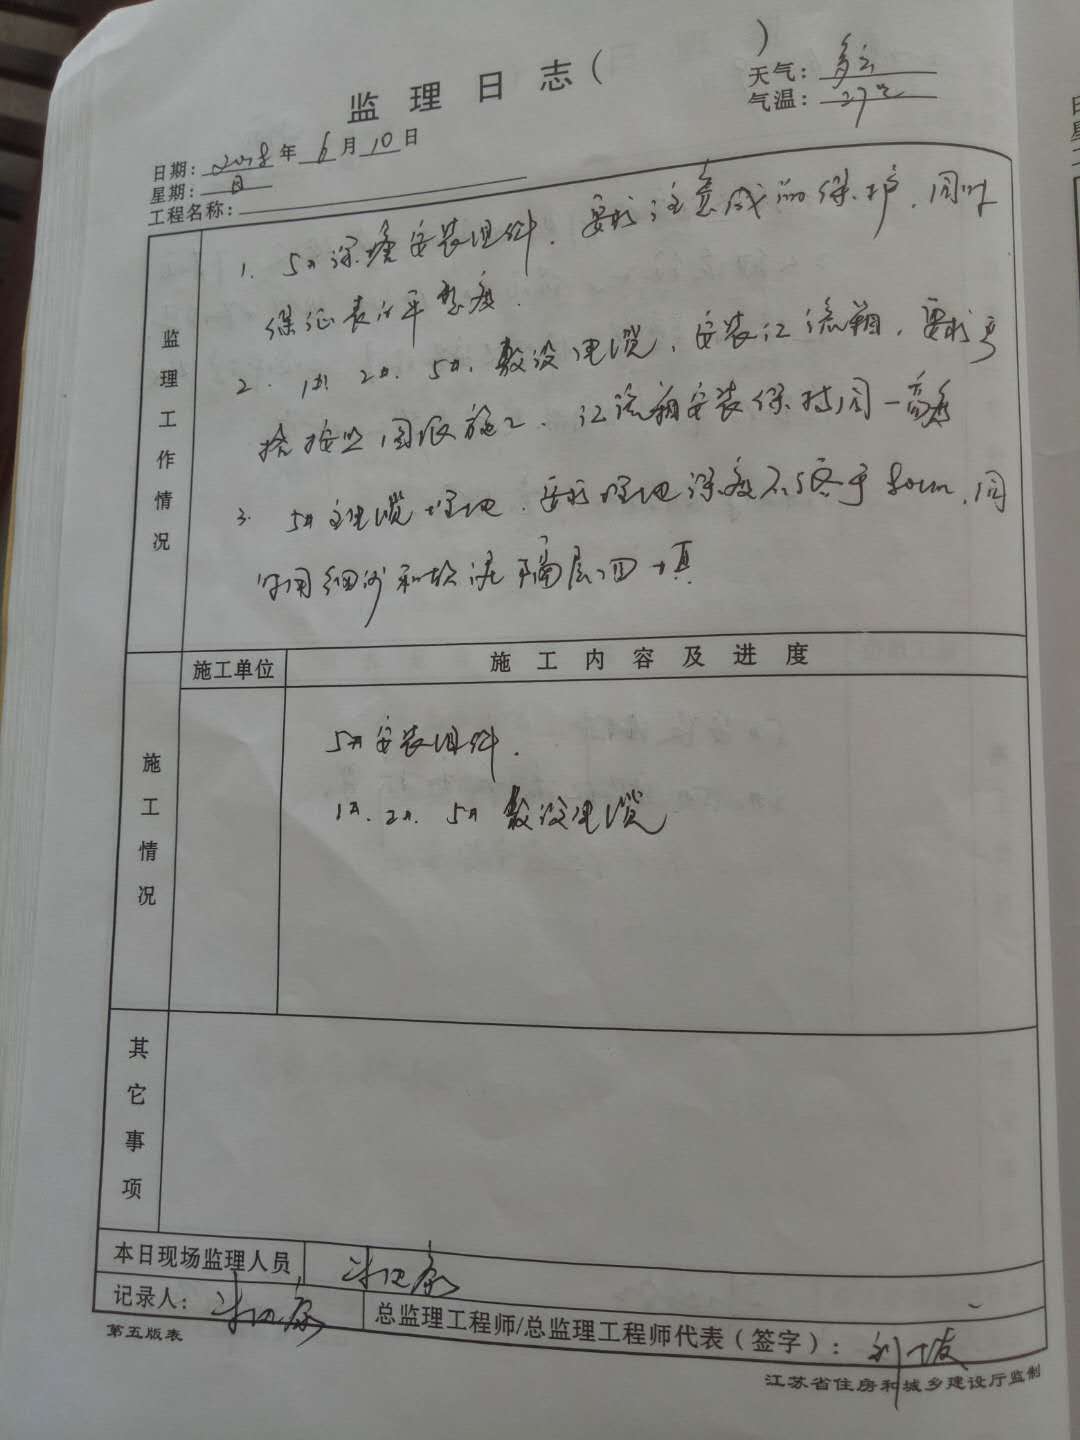 监理日志( )
天气：多云
气温：27℃
日期：2018年6月10日
星期：日
工程名称：
监理工作情况
1. 5# 安装组件．要求注意成品保护．同时
保证表面平整度．
2. 1#. 2#. 5#. 敷设电缆，安装汇流箱，要求严
格按照图纸施工．汇流箱安装保持同一高度
3. 5#主电缆埋地．要求埋地深度不 于80cm．同
时用细沙和软泥隔层回填
施工情况
施工单位
施工内容及进度
5#安装组件．
1#. 2#. 5# 敷设电缆
其它事项
本日现场监理人员
记录人：
总监理工程师/总监理工程师代表（签字）：
第五版表
江苏省住房和城乡建设厅监制